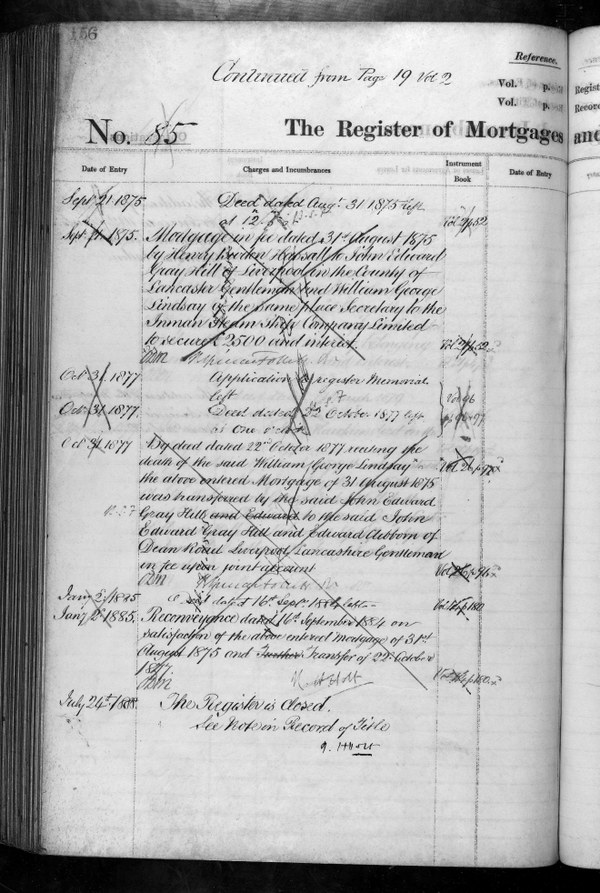 156
Reference.
Continued from Page 19 Vol 2
Vol. p.
Vol. p.
No. 85 The Register of Mortgages and
Regist
Recove
Date of Entry Charges and Incumbrances Instrument Book Date of Entry
Sept 21 1875 Deed dated Augt. 31 1875 left
at 12.
Sept 21. 1875. Mortgage in fee dated 31st August 1875
by Henry to John Edward
Gray Hill of Liverpool in the County of
Lancaster Gentleman and William George
Lindsay of the same place Secretary to the
Inman Steam Ship Company Limited
to secure £2500 and interest.
Oct 31. 1877 Application to register Memorial
left Vol
Oct 31 1877. Deed dated 22d October 1877 left
at one o'clock
Oct 31 1877 By deed dated 22nd October 1877 reciting the
death of the said William George Lindsay
the above entered Mortgage of 31 August 1875
was transferred by the said John Edward
Gray Hill and Edward to the said John
Edward Gray Hill and Edward of
Dean Road Liverpool Lancashire Gentleman
in fee upon joint account
Jany 2d 1885 dated 16th Sept. 1884
Jany 2d 1885. Reconveyance dated 16th September 1884 on
satisfaction of the above entered Mortgage of 31st
August 1875 and Further Transfer of 22nd October
1877.
Holt
July 24th 1888. The Register is Closed.
See Note on Record of Title